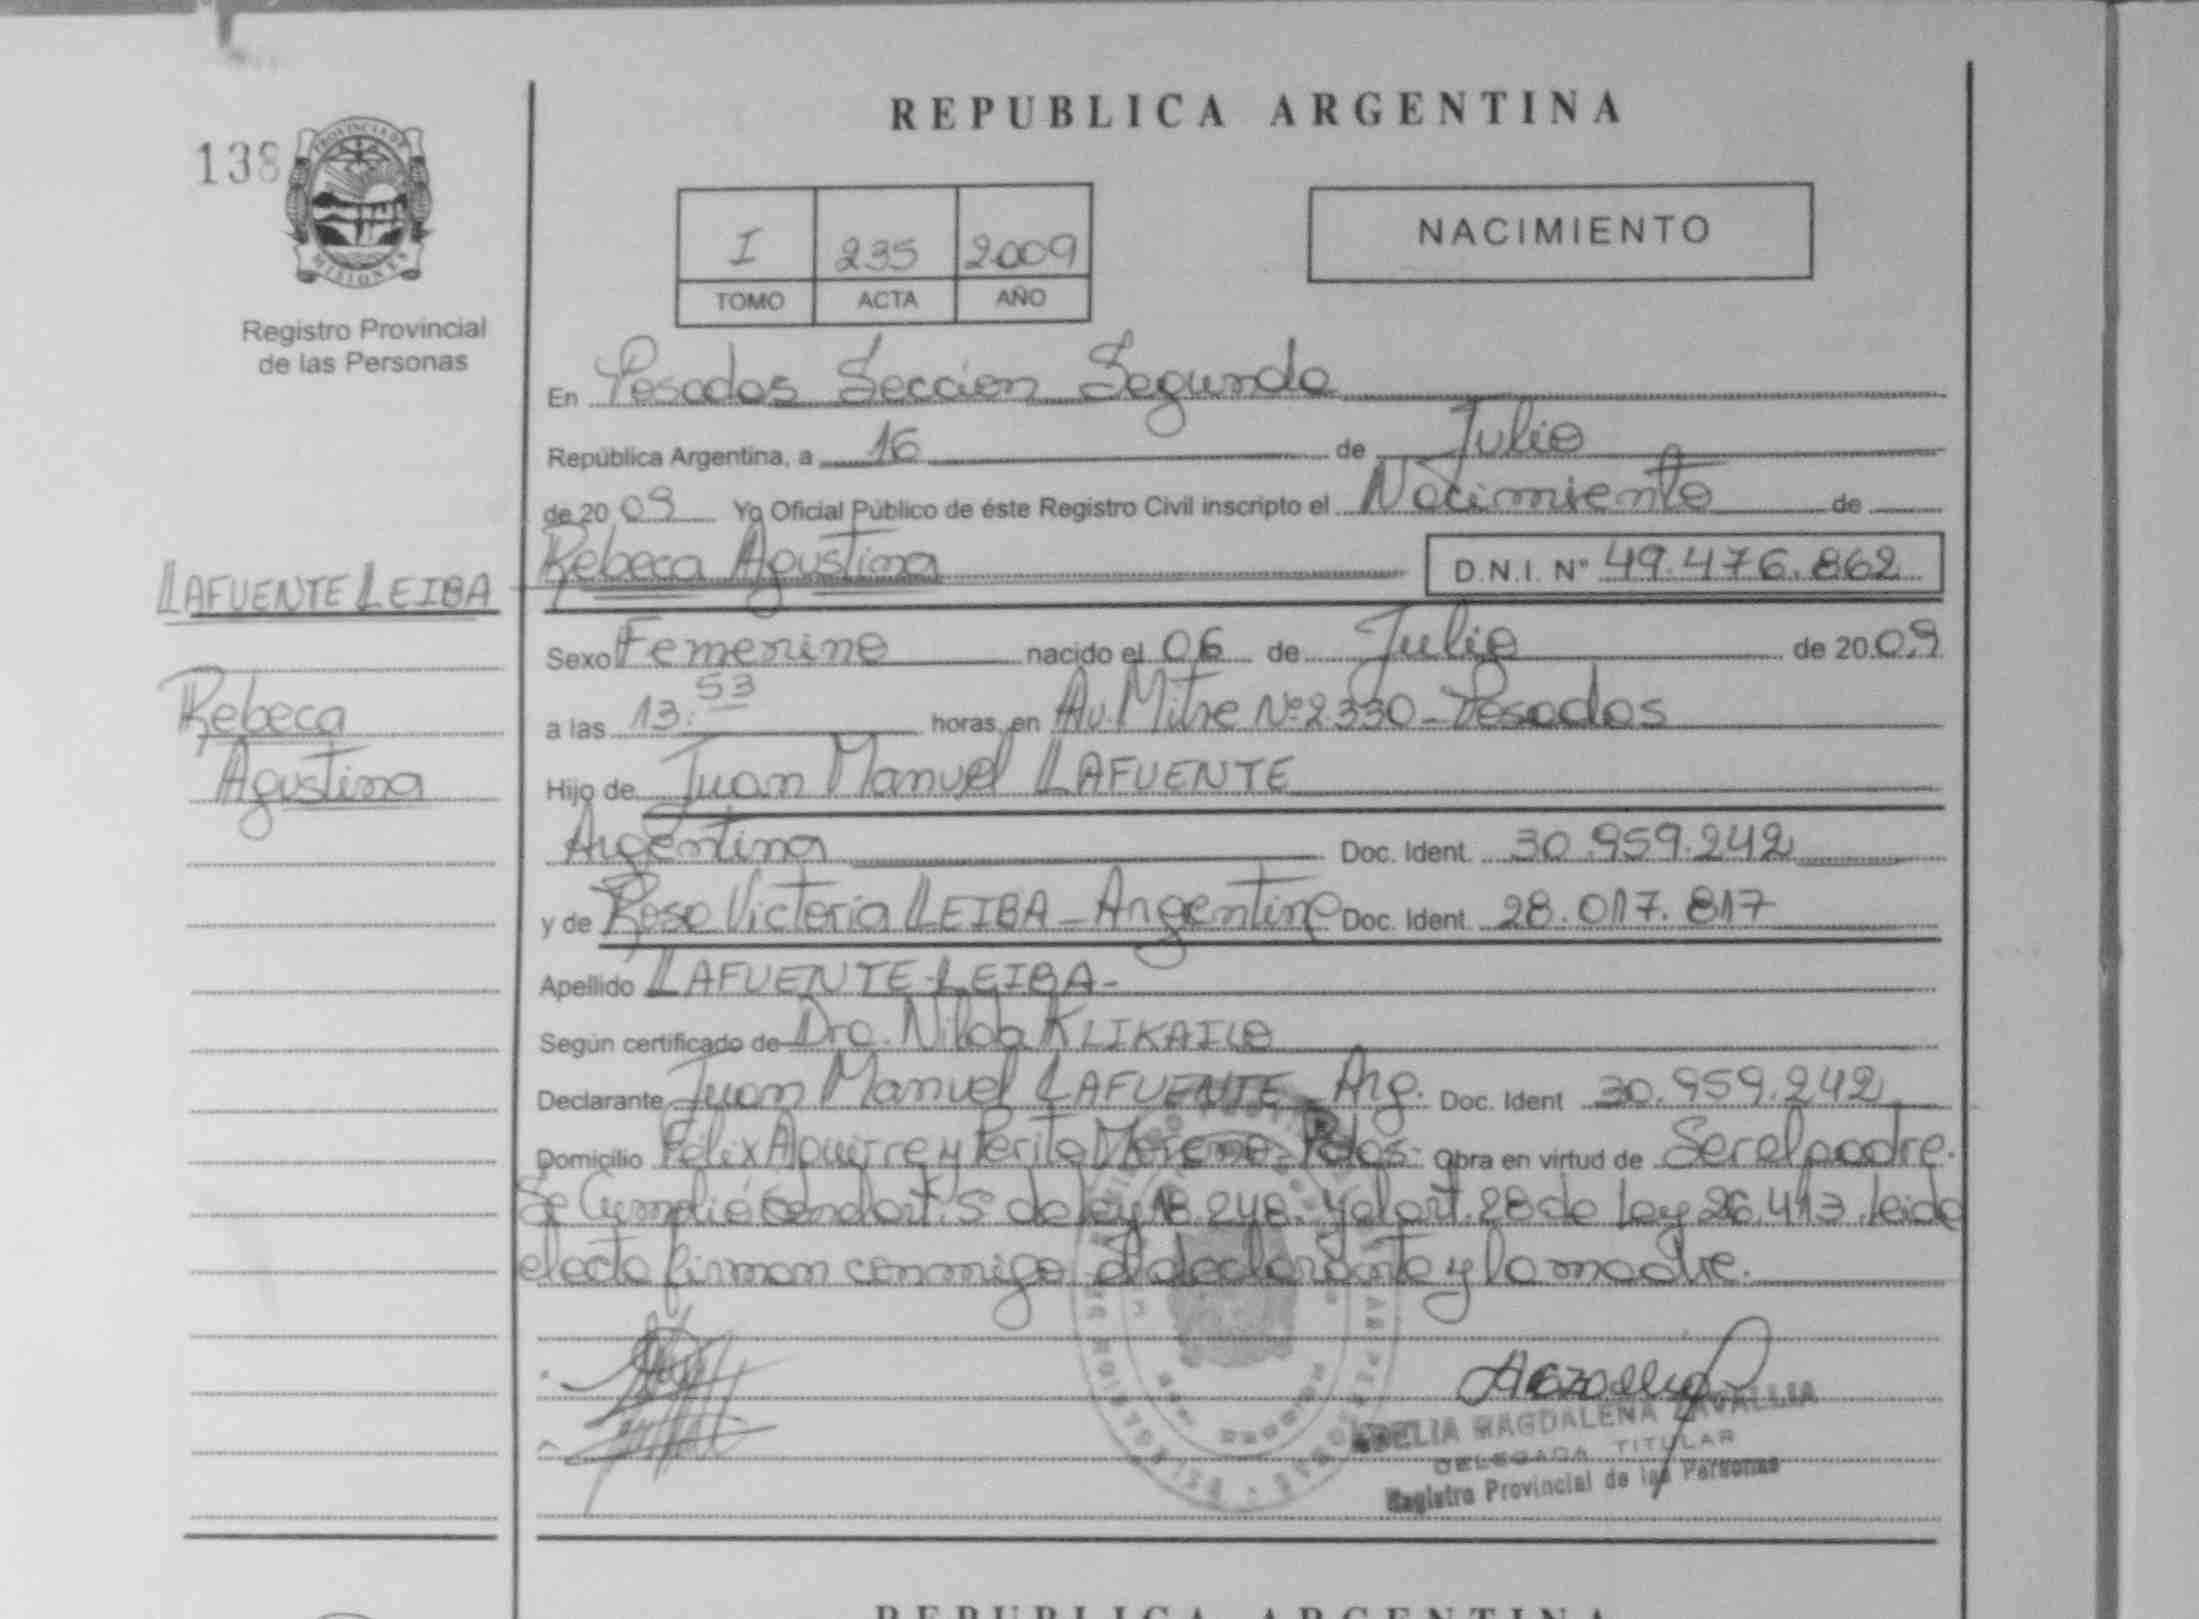 REPUBLICA ARGENTINA
138
PROVINCIA DE
MISIONES
Registro Provincial
de las Personas
I 235 2009
TOMO ACTA AÑO
NACIMIENTO
En Posadas Sección Segunda
República Argentina, a 16 de Julio
de 2009 Yo Oficial Público de éste Registro Civil inscripto el Nacimiento de
Rebeca Agustina D.N.I. N° 49.476.862
LAFUENTE LEIBA
Rebeca
Agustina
Sexo Femenino nacido el 06 de Julio de 2009
a las 13:53 horas, en Av. Mitre Nº 2.330 - Posadas
Hijo de Juan Manuel LAFUENTE
Argentina Doc. Ident. 30.959.242
y de Rosa Victoria LEIBA - Argentina Doc. Ident. 28.017.817
Apellido LAFUENTE LEIBA-
Según certificado de Dra. Nilda
Declarante Juan Manuel LAFUENTE - Arg. Doc. Ident 30.959.242
Domicilio Felix Aguirre y Perito Moreno - Pdas. Obra en virtud de Ser el padre.
Se Cumplió con el art. 5 de ley 18.248. y el art. 28 de Ley 26.413. leida
el acta firman conmigo el declarante y la madre.
ADELIA MAGDALENA ZAVALLIA
DELEGADA TITULAR
Registro Provincial de las Personas
REPUBLICA ARGENTINA